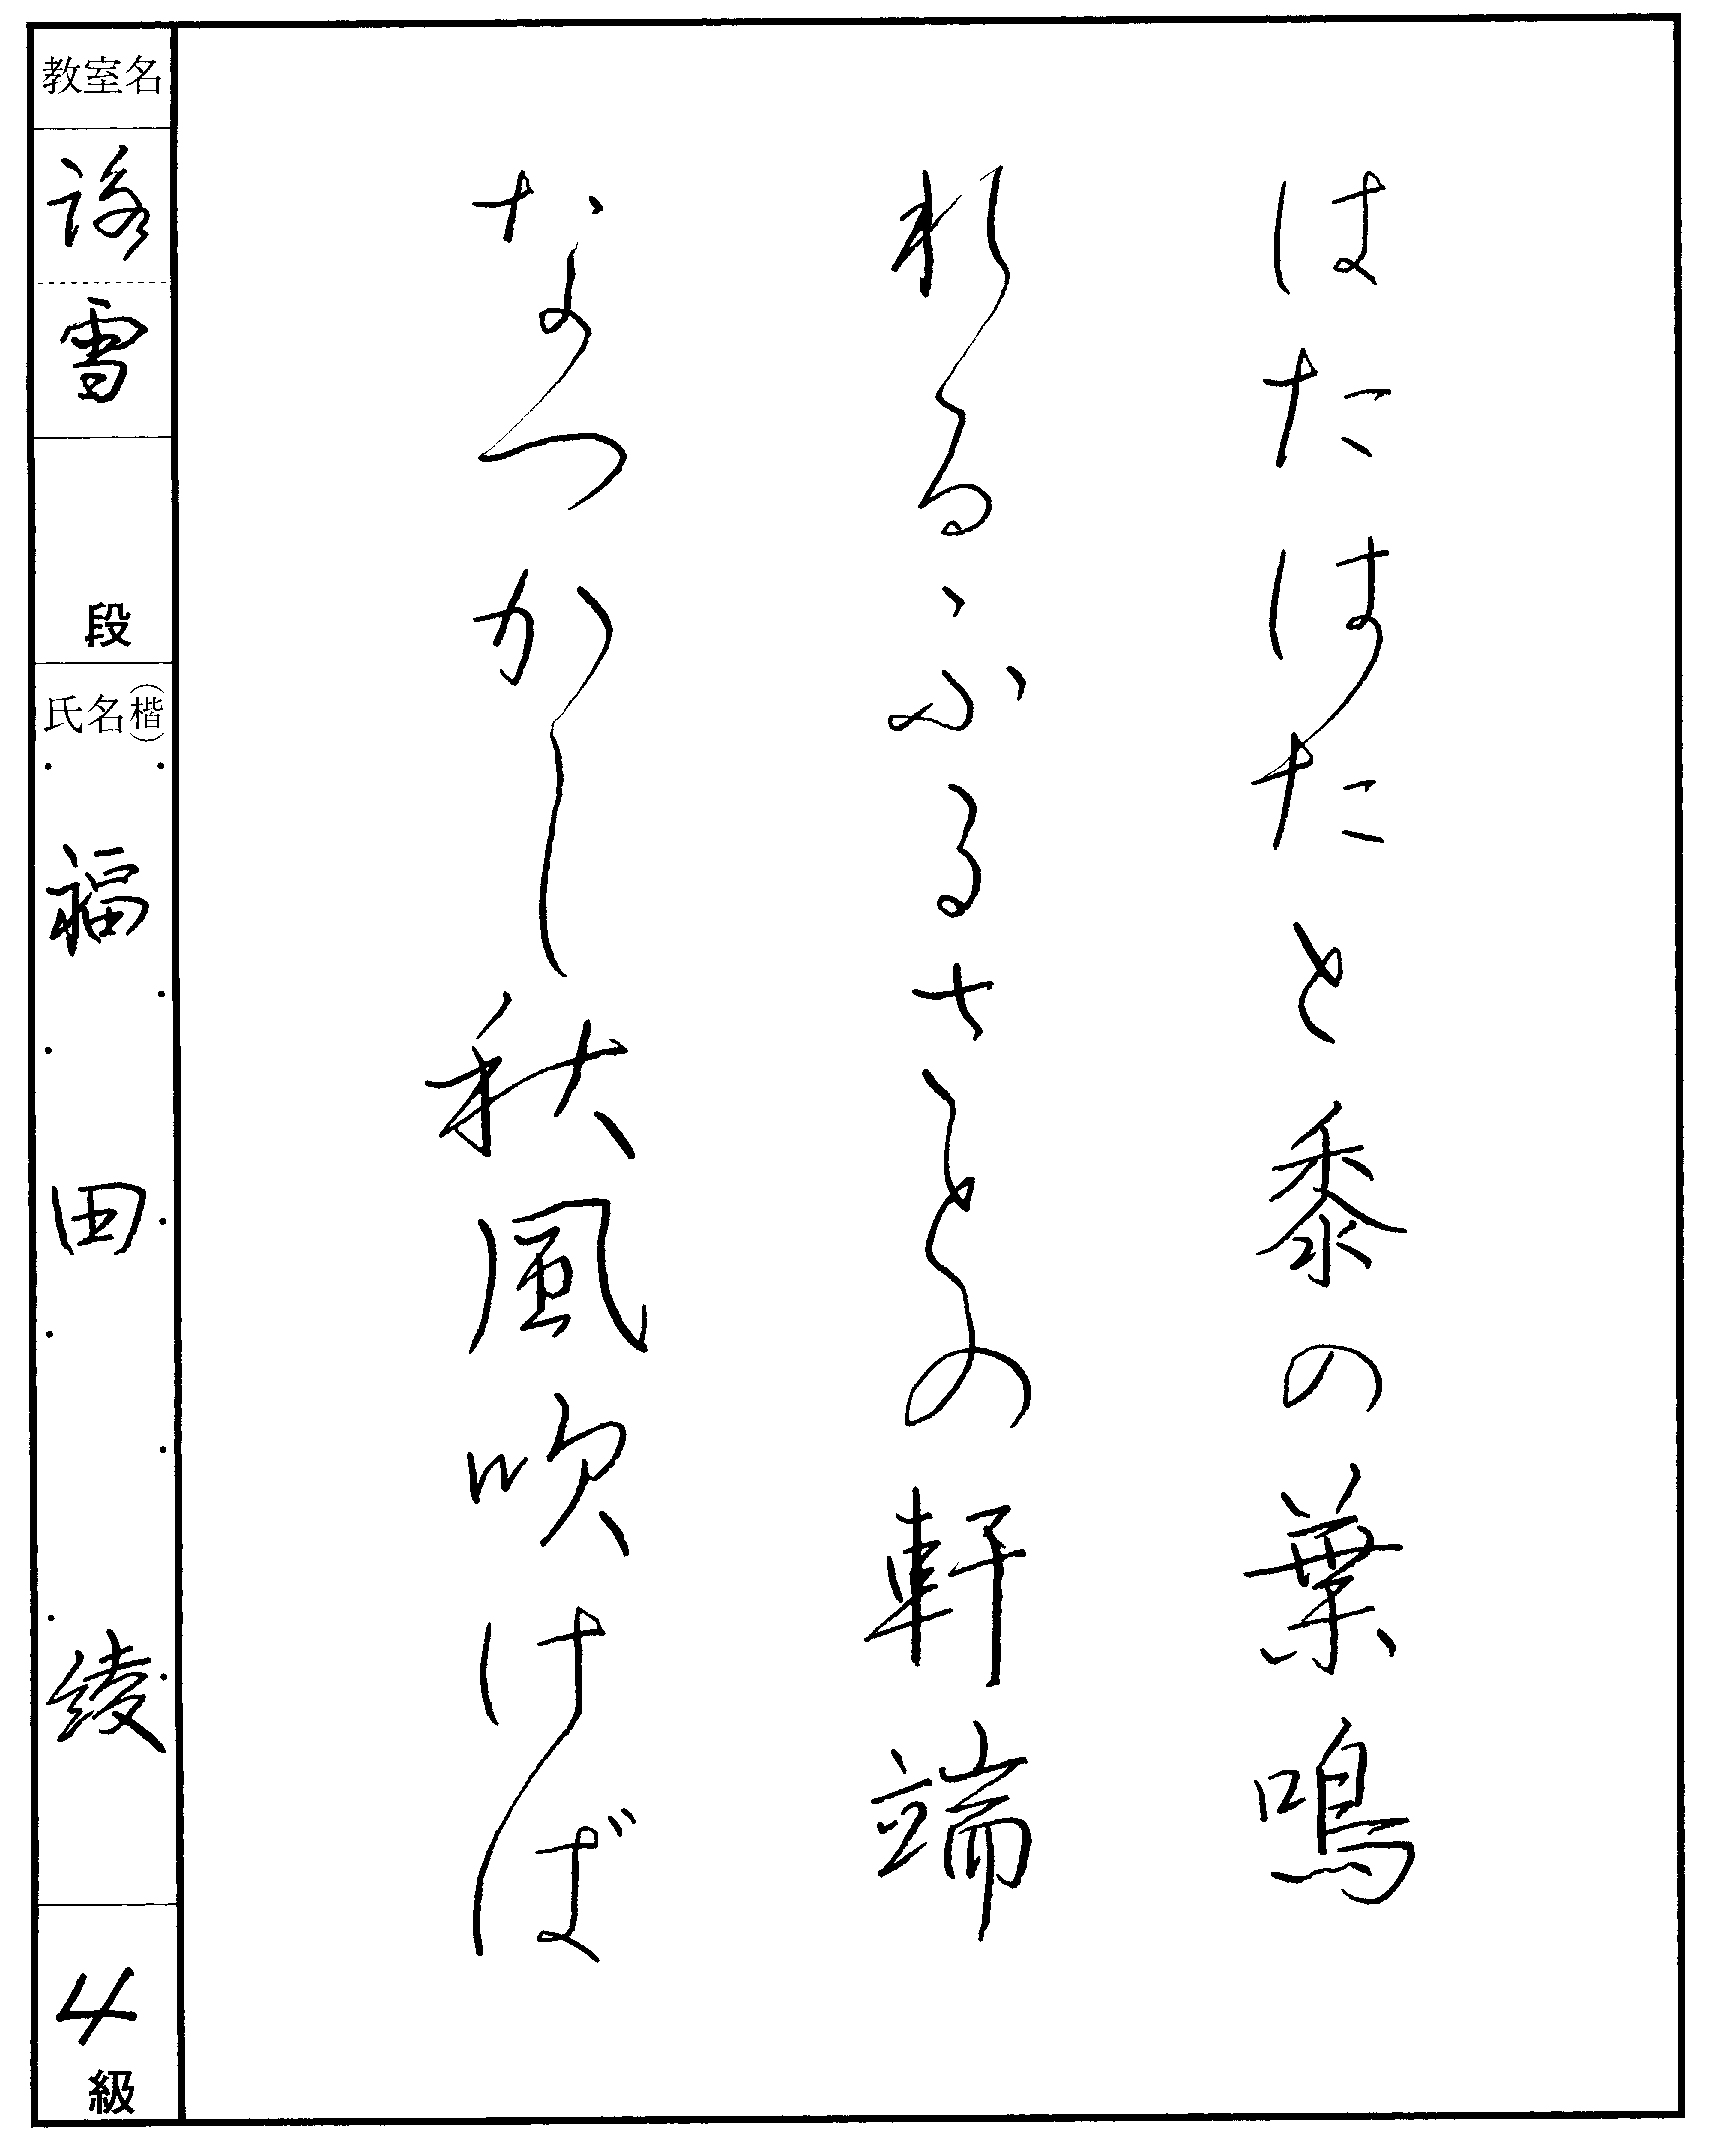 はたはたと黍の葉鳴
れるふるさとの軒端
なつかし秋風吹けば
教室名
雪
段
氏名(楷)
福田綾
4級